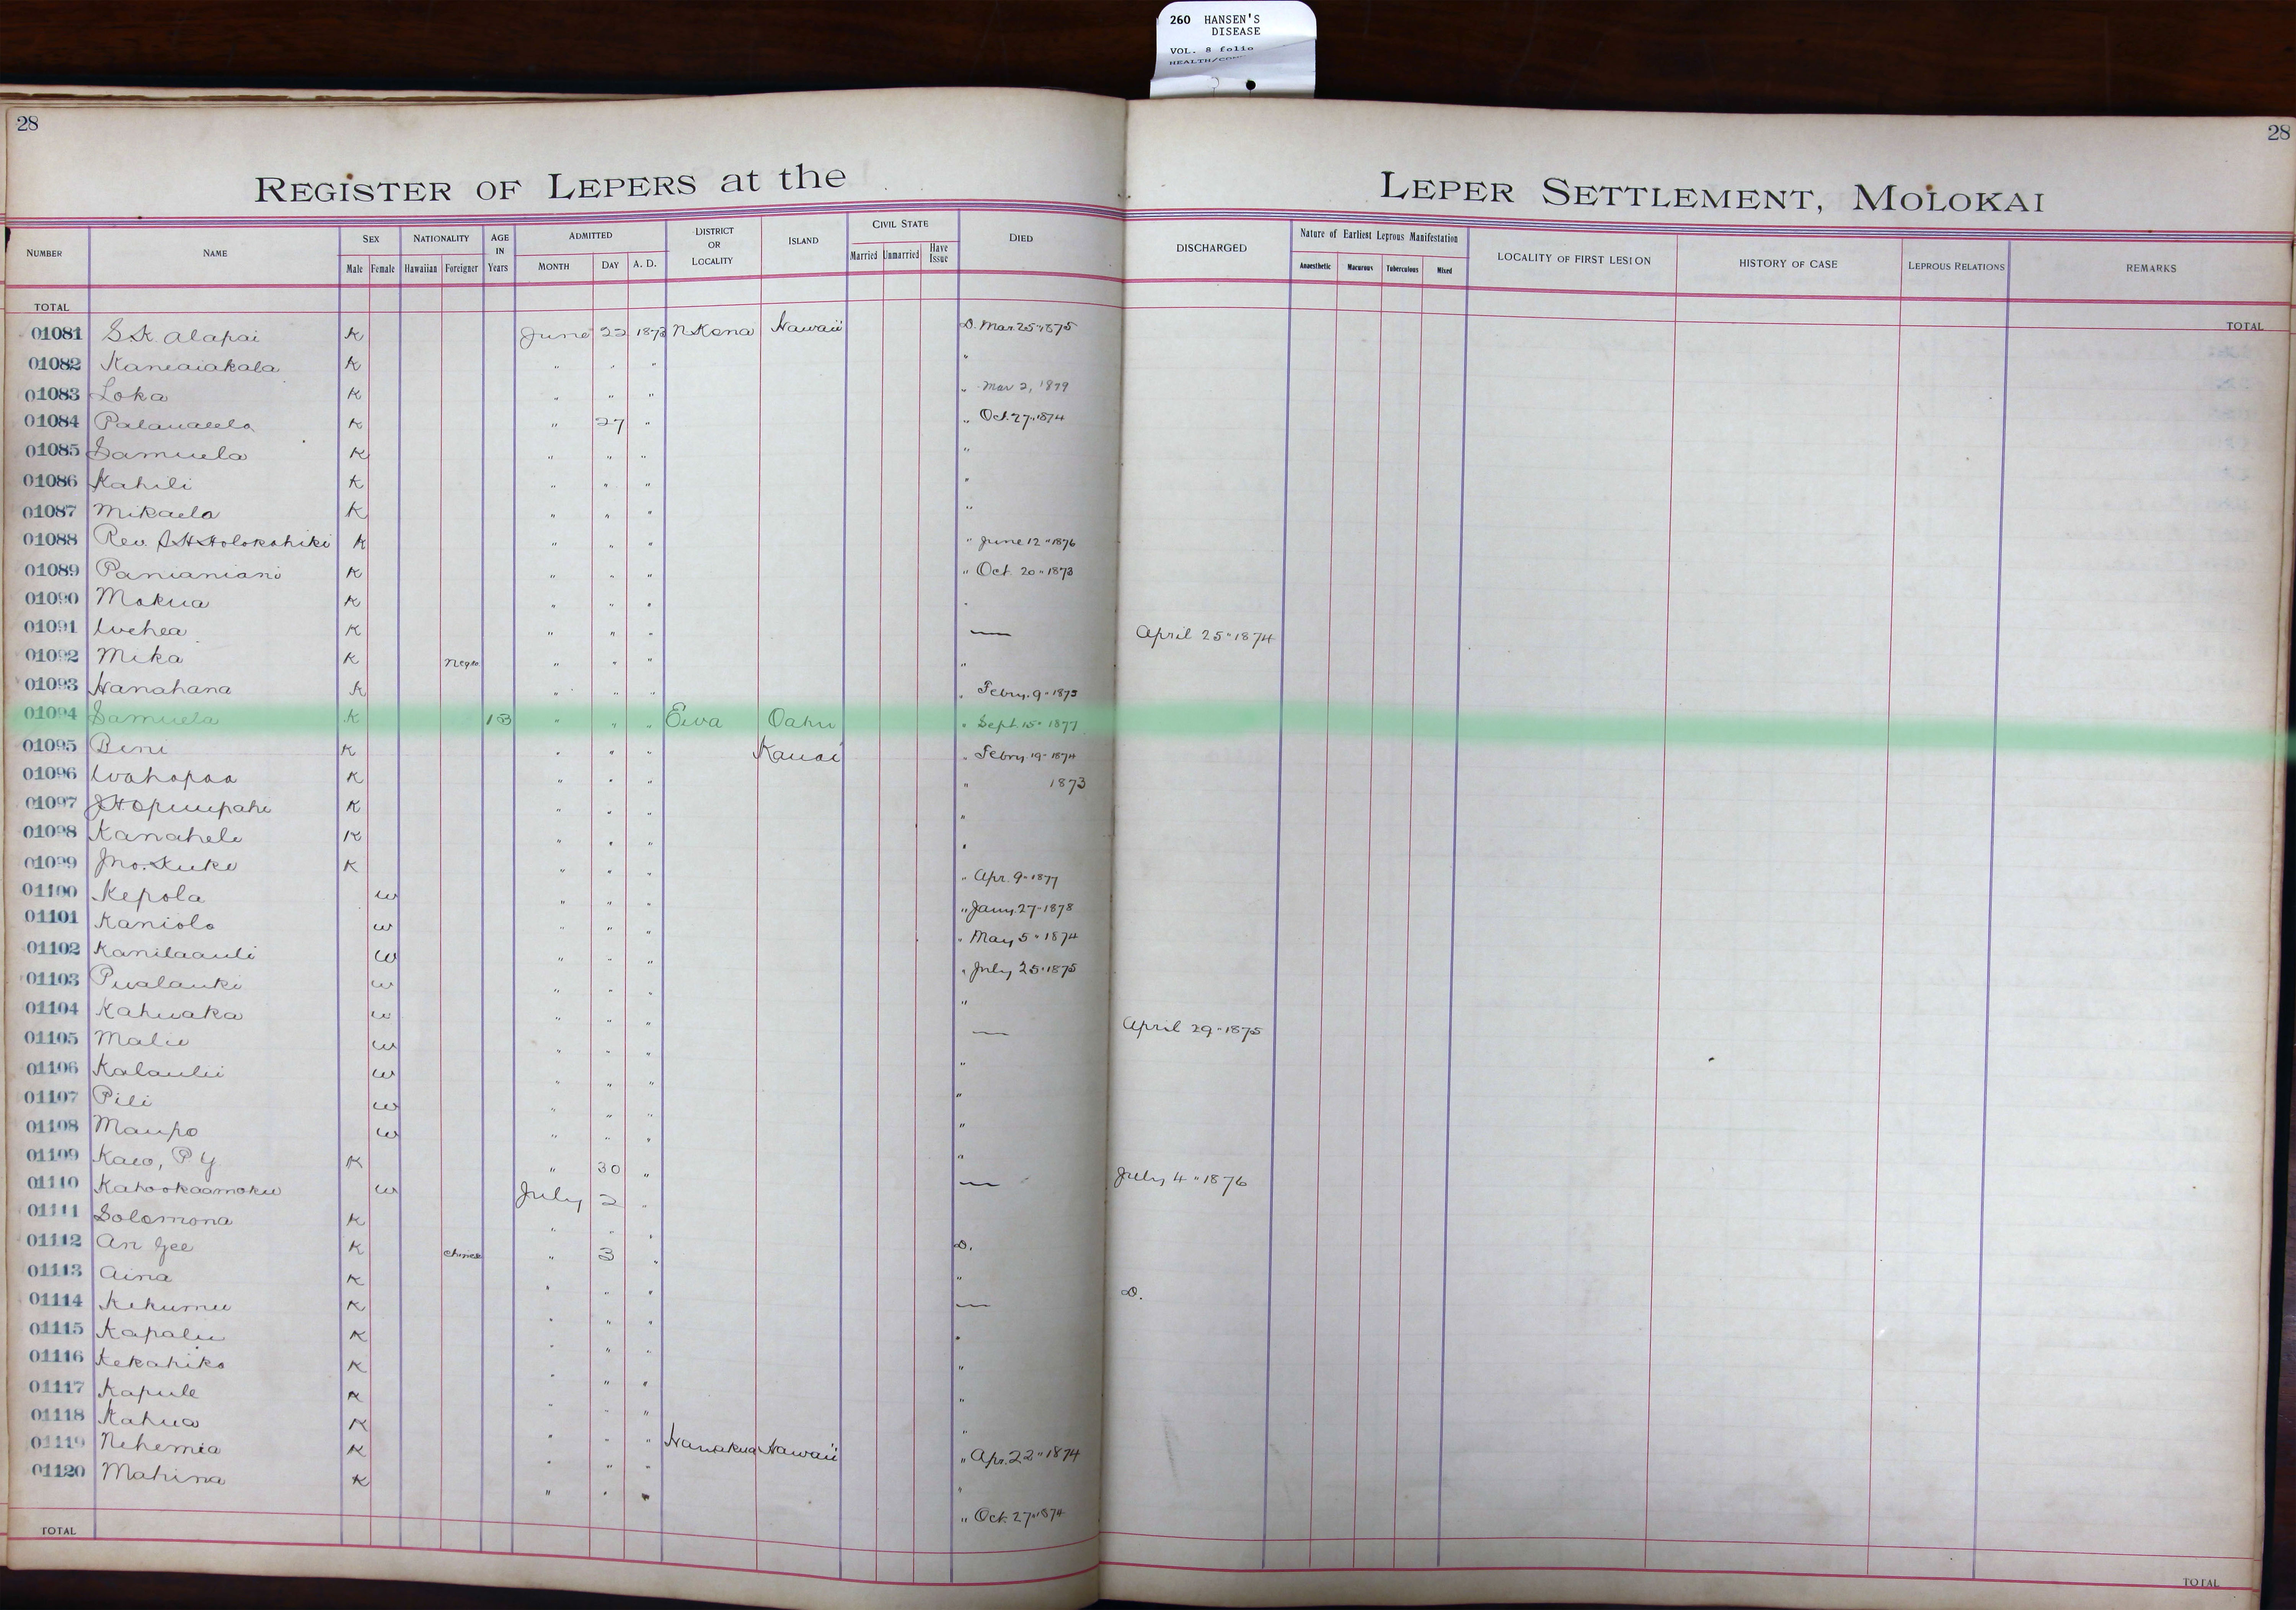 260 HANSEN'S
DISEASE
VOL. 8 folio
28
28
REGISTER OF LEPERS at the LEPER SETTLEMENT, MOLOKAI
NUMBER NAME SEX NATIONALITY AGE IN Years ADMITTED DISTRICT OR LOCALITY ISLAND CIVIL STATE DIED DISCHARGED Nature of Earliest Leprous Manifestation LOCALITY OF FIRST LESION HISTORY OF CASE LEPROUS RELATIONS REMARKS
Male Female Hawaiian Foreigner MONTH DAY A. D. Married Unmarried Have Issue Anaesthetic Macurous Tuberculous Mixed
TOTAL TOTAL
01081 S.K. Alapai K June 22 1873 N Kona Hawaii D. Mar. 25 " 1875
01082 Kaneaiakala K " " " "
01083 Loka K " " " " Mar 2, 1879
01084 K " 27 " " Oct. 27 " 1874
01085 Samuela K " " " "
01086 Kahili K " " " "
01087 Mikaela K " " " "
01088 Rev. S H Holokahiki K " " " " June 12 " 1876
01089 Panianiani K " " " " Oct. 20 " 1873
01090 Mokua K " " " "
01091 Wehea K " " " — April 25 " 1874
01092 Mika K Negro " " " "
01093 Hanahana K " " " " Febry. 9 "
01094 Samuela K " " " Ewa Oahu " Sept. 15 " 1877
01095 Beni K " " " Kauai " Febry 19 " 1874
01096 Wahapaa K " " " " 1873
01097 J H Opiumpahi K " " " "
01098 Kanahele K " " " "
01099 Jno. Kuke K " " " " Apr. 9 " 1877
01100 Kepola w " " " " Jany. 27 " 1878
01101 Kaniolo w " " " " May 5 " 1874
01102 Kanilaauli w " " " " July 25 " 1875
01103 Pualauki w " " " "
01104 Kahuaka w " " " — April 29 " 1875
01105 Malie w " " " "
01106 Kalaulii w " " " "
01107 Pili w " " " "
01108 Maupo w " " " "
01109 Kaeo, P Y K " 30 " — July 4 " 1876
01110 Kahookaamoku w July 2 "
01111 Solomona K " " " D.
01112 An Gee K Chinese " 3 " "
01113 Aina K " " " — D.
01114 Kekumu K " " " "
01115 Kapalu K " " " "
01116 Kekahiko K " " " "
01117 Kapule K " " " "
01118 Kahua K " " " Hamakua Hawaii " Apr. 22 " 1874
01119 Nehemia K " " " "
01120 Mahina K " " " " Oct. 27 " 1874
TOTAL TOTAL